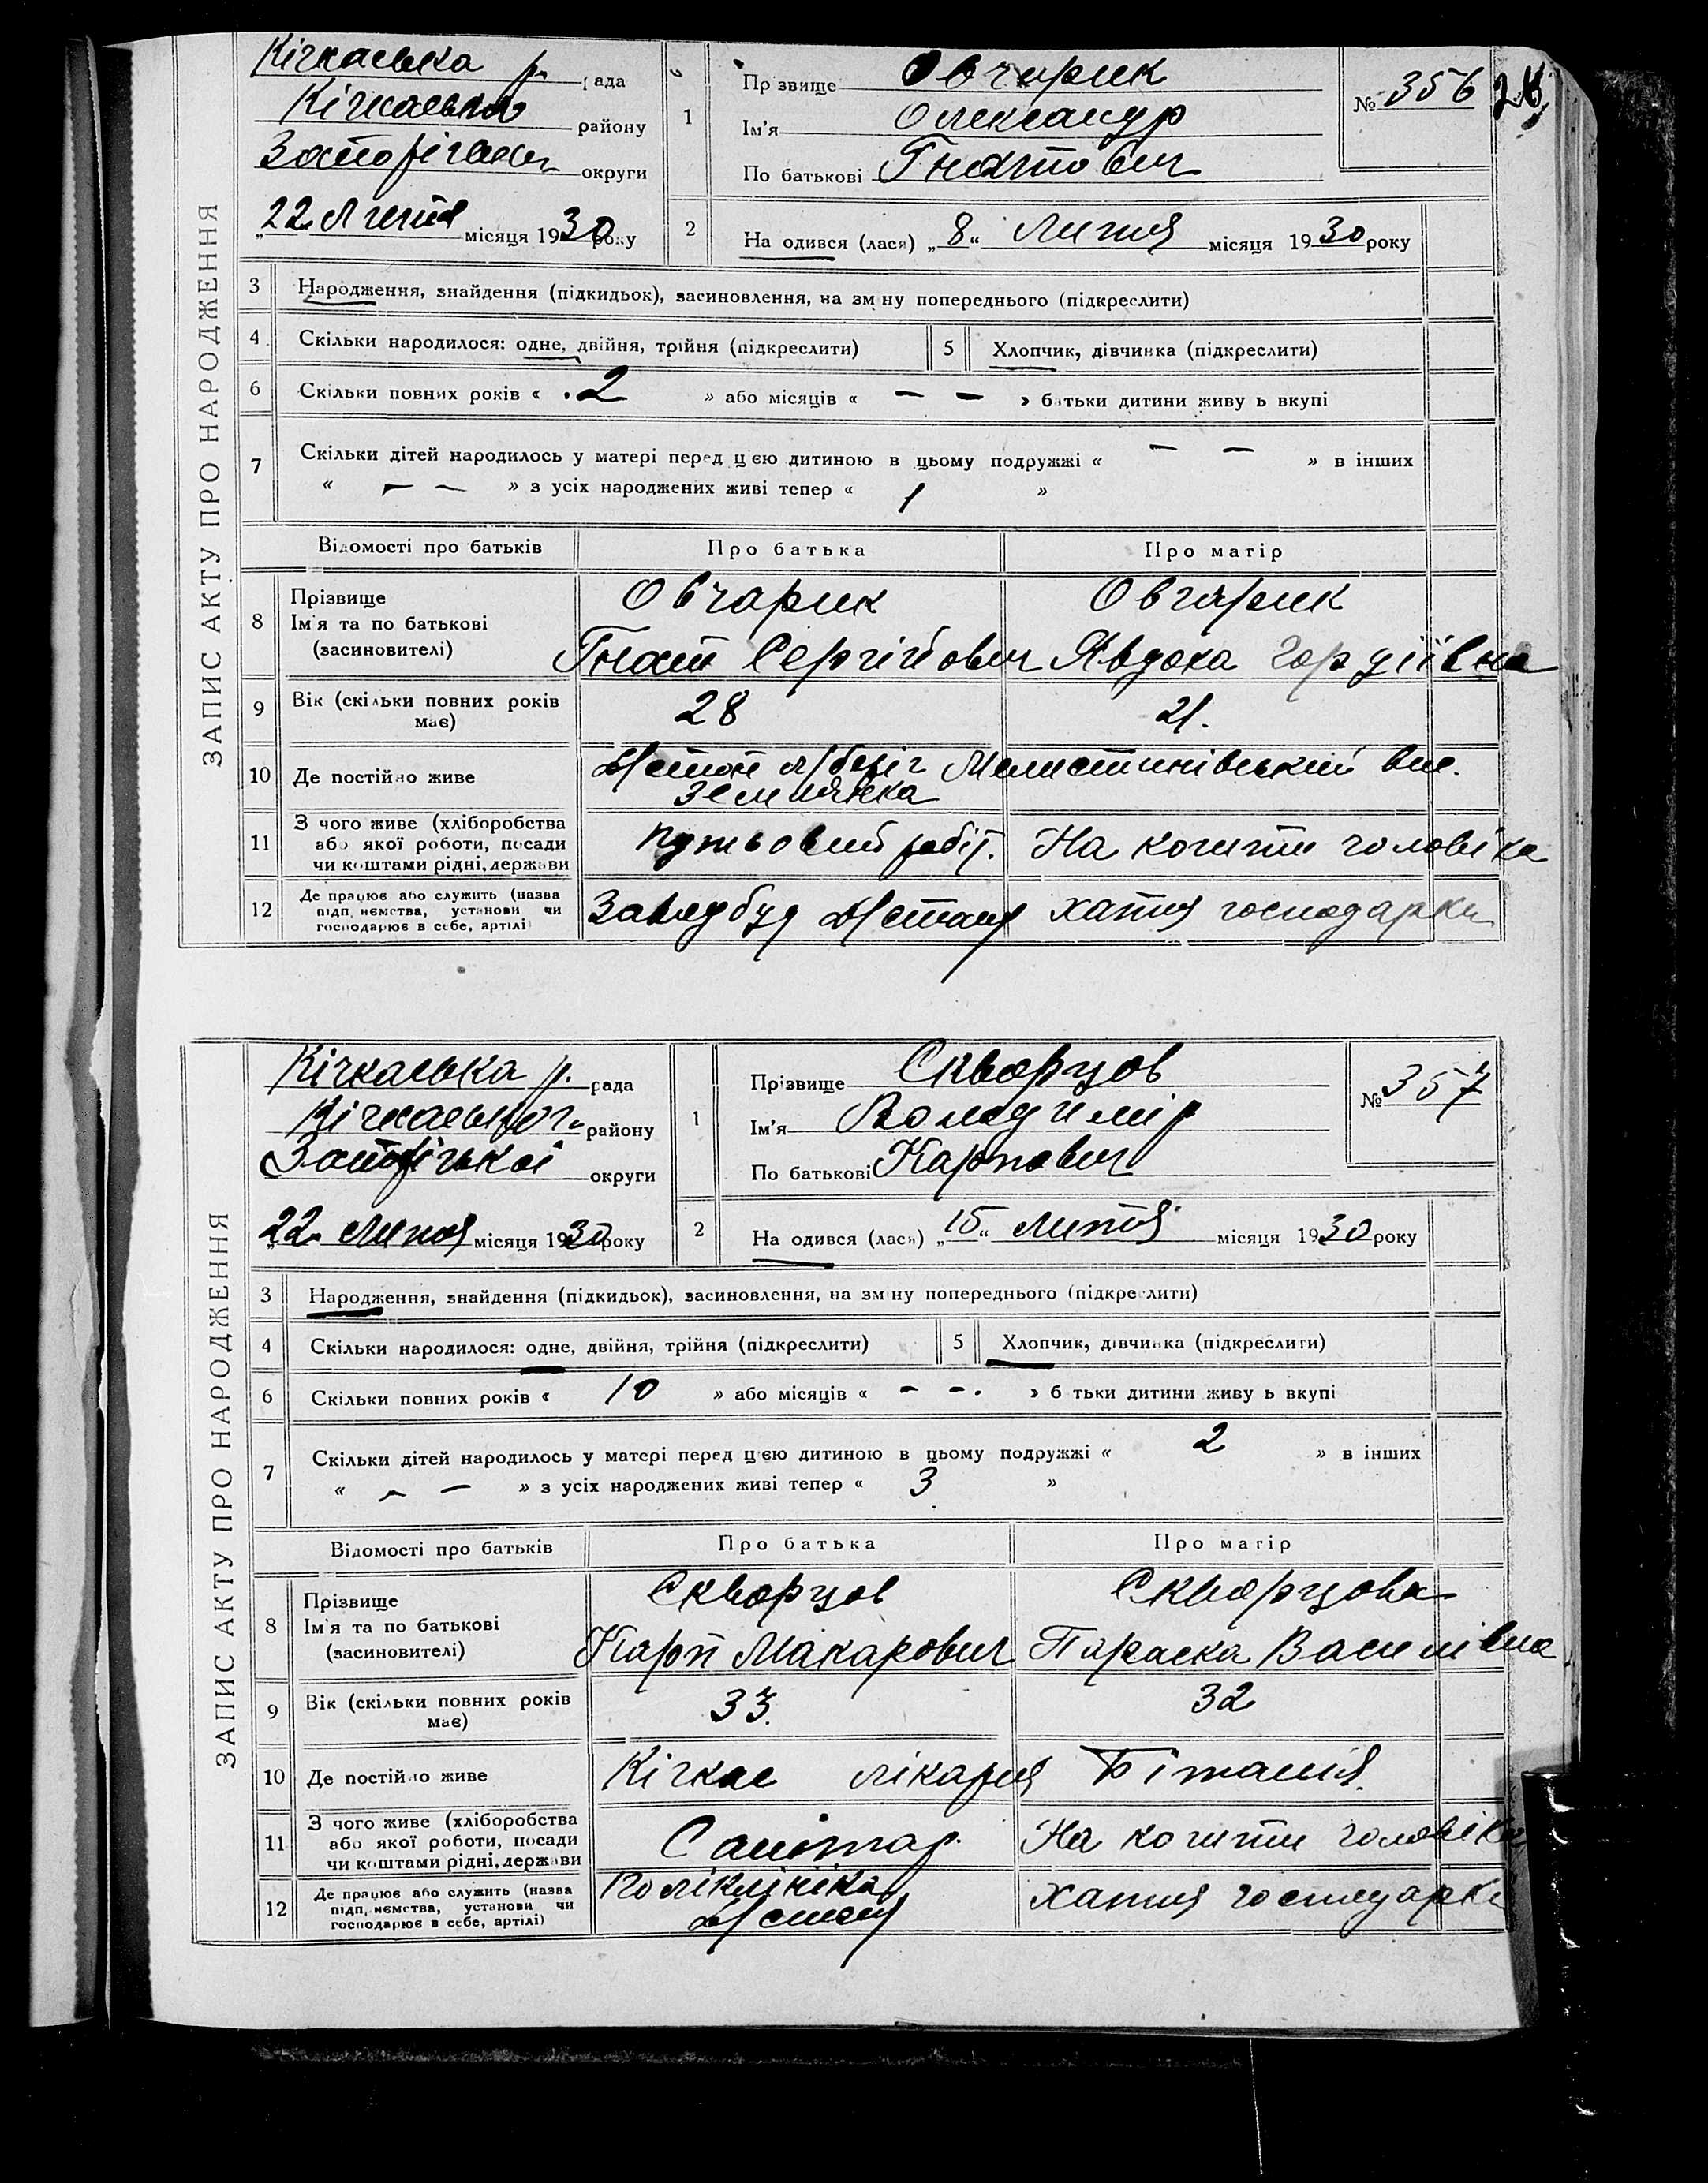 ЗАПИС АКТУ ПРО НАРОДЖЕННЯ
Кічкаська р. рада
Кічкаського району
Запорізької округи
„22 Липня місяця 1930 року
1
Прізвище Овчарик
Ім'я Олександр
По батькові Гнатович
№ 356
2
На одився (лася) „8“ Липня місяця 1930 року
3 Народження, знайдення (підкидьок), засиновлення, на зм ну попереднього (підкреслити)
4 Скільки народилося: одне, двійня, трійня (підкреслити) 5 Хлопчик, дівчинка (підкреслити)
6 Скільки повних років « 2 » або місяців « — — » батьки дитини живу ь вкупі
7 Скільки дітей народилось у матері перед цією дитиною в цьому подружжі « — — » в інших
« — — » з усіх народжених живі тепер « 1 »
Відомості про батьків Про батька Про матір
8 Прізвище
Ім'я та по батькові
(засиновителі)
Овчарик
Гнат Сергійович
Овчарик
Явдоха Гордіївна
9 Вік (скільки повних років має) 28 21.
10 Де постійно живе
землянка
11 З чого живе (хліборобства
або якої роботи, посади
чи коштами рідні, держави
Путьовий робіт. На кошти чоловіка
12 Де працює або служить (назва
підп, немства, установи чи
господарює в себе, артілі)
хатня господарка
ЗАПИС АКТУ ПРО НАРОДЖЕННЯ
Кічкаська р. рада
Кічкаського району
Запорізької округи
„22 Липня місяця 1930 року
1
Прізвище Скворцов
Ім'я Володимір
По батькові Карпович
№ 357
2
На одився (лася) „15“ Липня місяця 1930 року
3 Народження, знайдення (підкидьок), засиновлення, на зм ну попереднього (підкреслити)
4 Скільки народилося: одне, двійня, трійня (підкреслити) 5 Хлопчик, дівчинка (підкреслити)
6 Скільки повних років « 10 » або місяців « — — » б тьки дитини живу ь вкупі
7 Скільки дітей народилось у матері перед цією дитиною в цьому подружжі « 2 » в інших
« — — » з усіх народжених живі тепер « 3 »
Відомості про батьків Про батька Про матір
8 Прізвище
Ім'я та по батькові
(засиновителі)
Скворцов
Карп Макарович
Скворцова
Параска Василівна
9 Вік (скільки повних років має) 33. 32
10 Де постійно живе Кічкас лікарня
11 З чого живе (хліборобства
або якої роботи, посади
чи коштами рідні, держави
Санітар. На кошти чоловіка
12 Де працює або служить (назва
підп, немства, установи чи
господарює в себе, артілі)
Поліклініка
хатня господарка